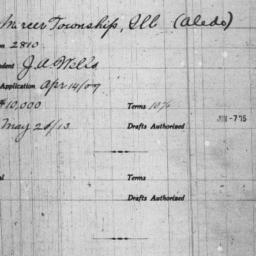 Mercer Township, Ill. (Aledo)
2810
J.A. Wells
Application Apr 14/07
$10,000 Terms 10%
May 20/13 Drafts Authorized
JUN -7 '15
Terms
Drafts Authorized